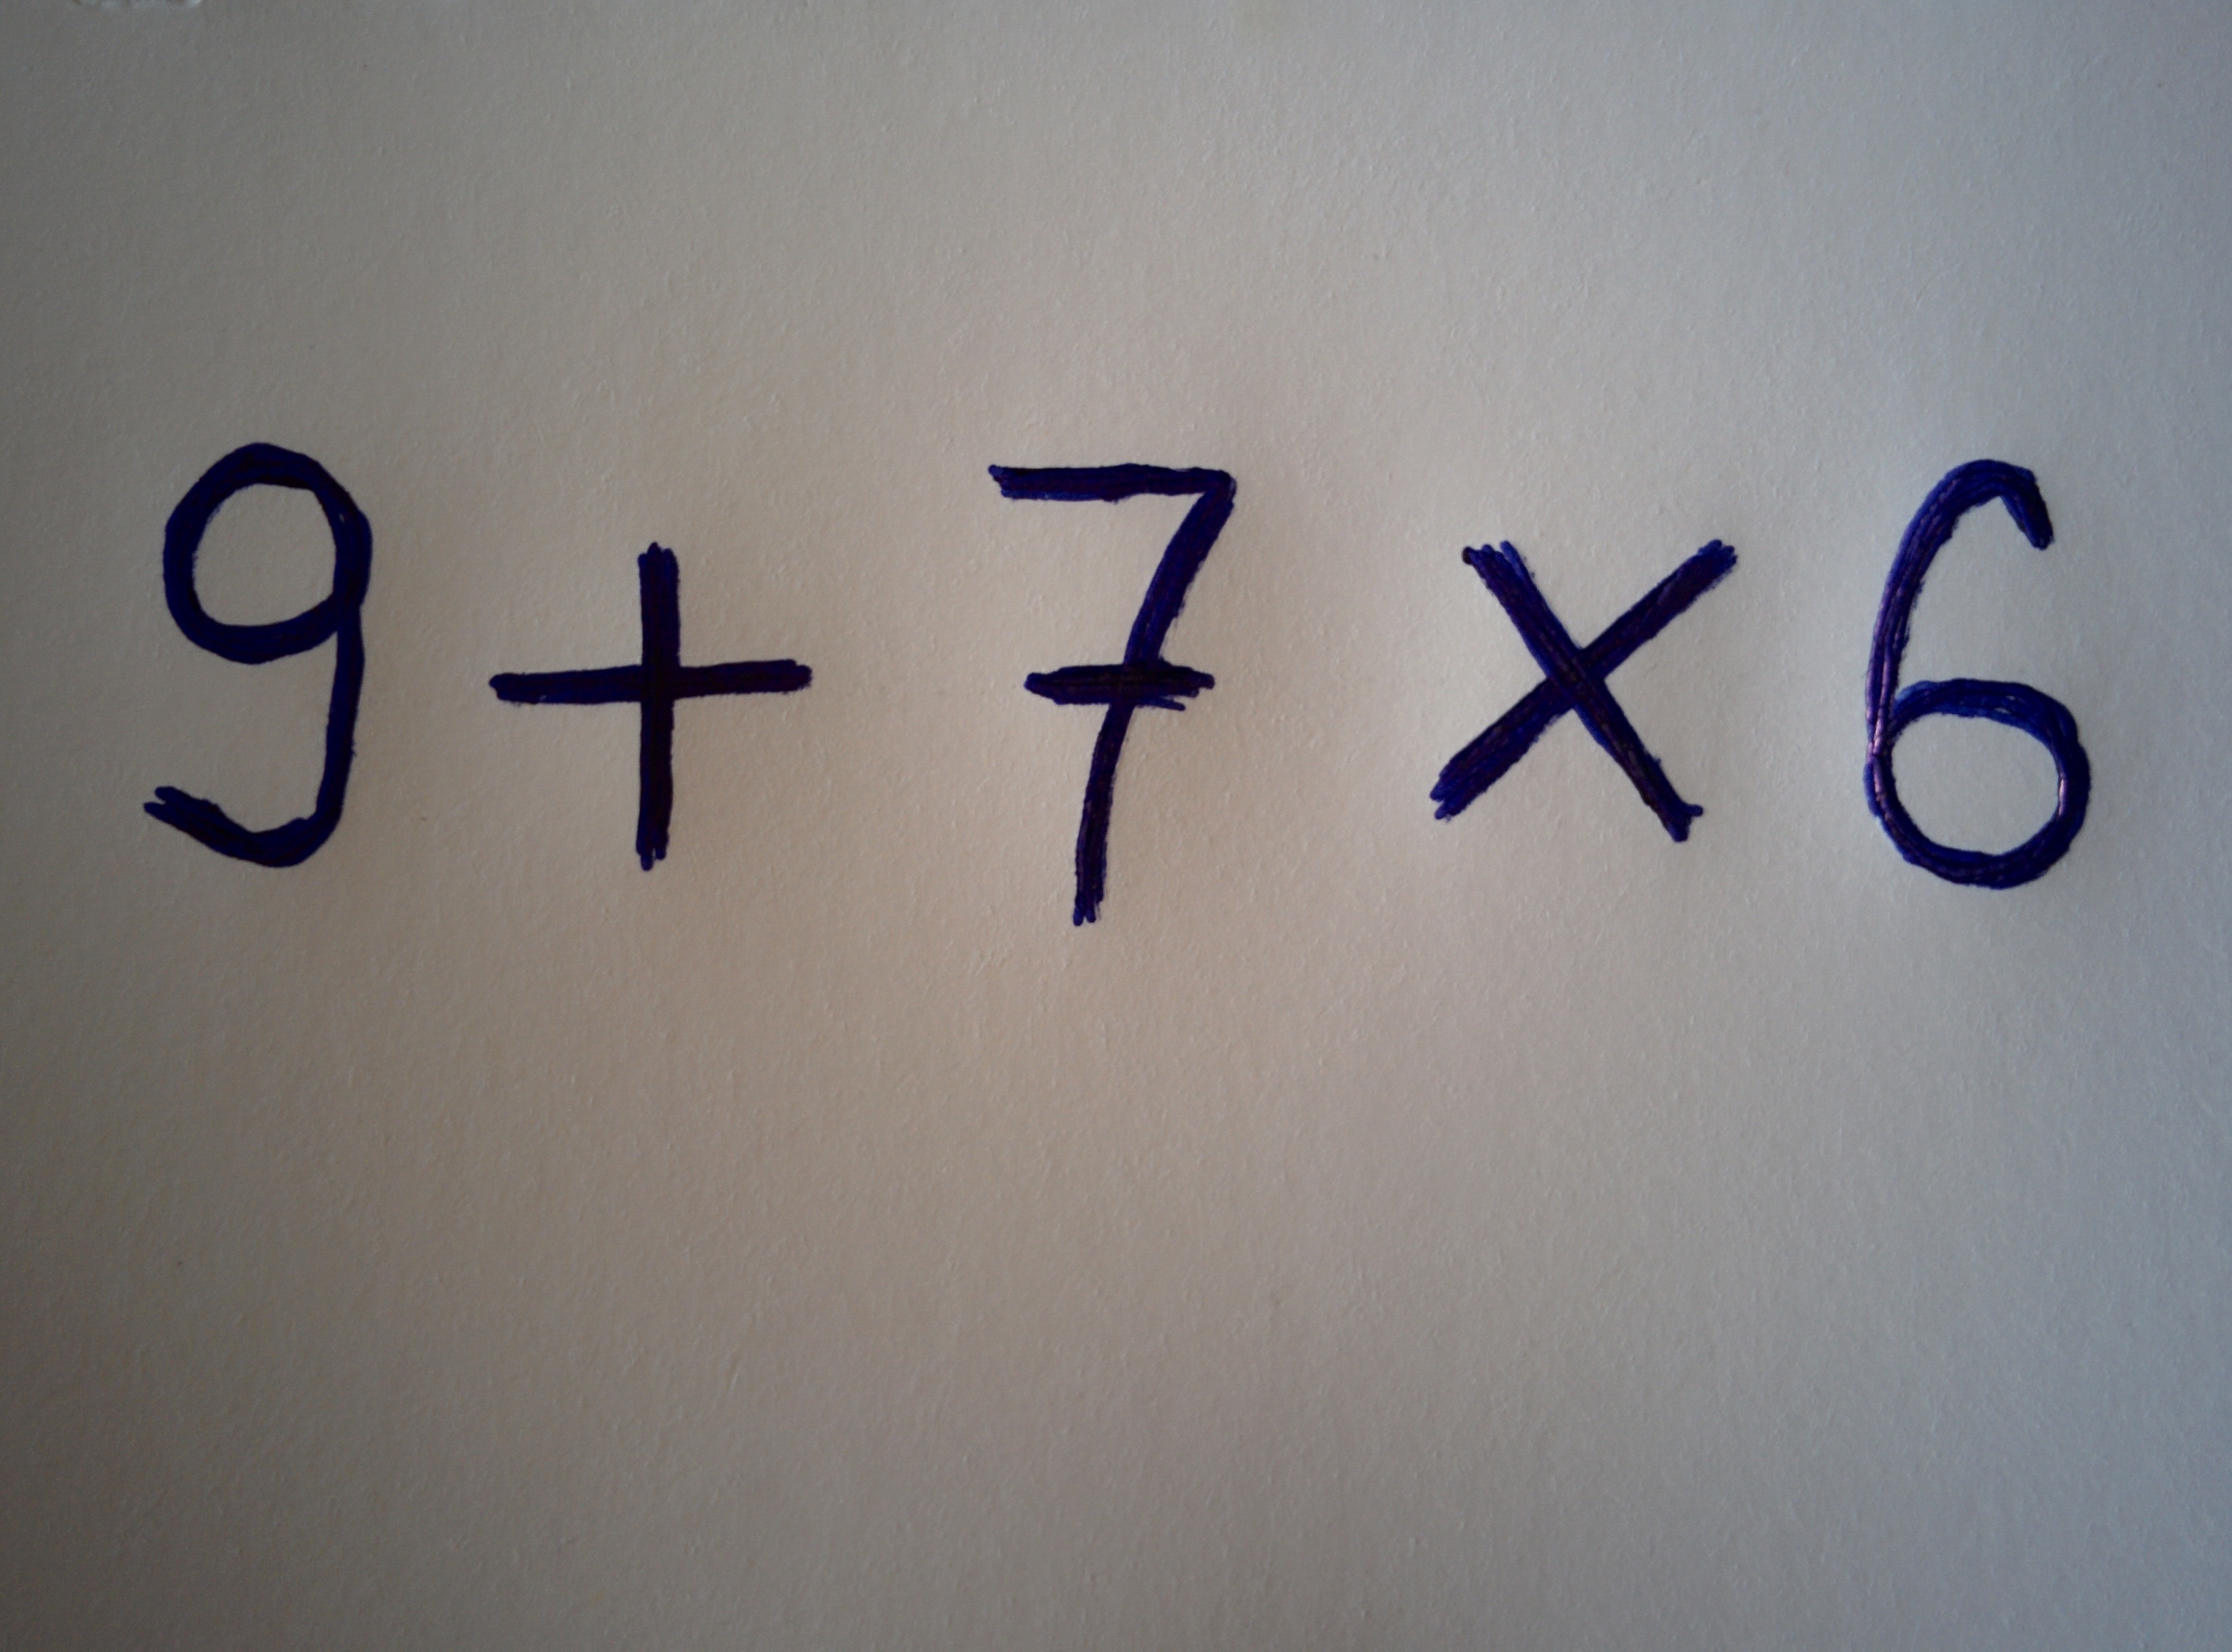 9 + 7 × 6